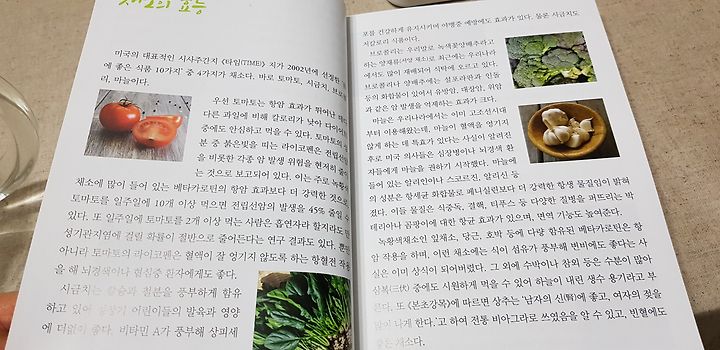 채소의 효능
미국의 대표적인 시사주간지 《타임(TIME)》지가 2002년에 선정한
에 좋은 식품 10가지' 중 4가지가 채소다. 바로 토마토, 시금치, 브로
리, 마늘이다.
우선 토마토는 항암 효과가 뛰어난
다른 과일에 비해 칼로리가 낮아 다이어
중에도 안심하고 먹을 수 있다. 토마토의
분 중 붉은빛을 띠는 라이코펜은 전립선암
을 비롯한 각종 암 발생 위험을 현저히 줄
는 것으로 보고되어 있다. 이는 주로 녹황
채소에 많이 들어 있는 베타카로틴의 항암 효과보다 더 강력한 것으로
토마토를 일주일에 10개 이상 먹으면 전립선암의 발생을 45% 줄일 수
다. 또 일주일에 토마토를 2개 이상 먹는 사람은 흡연자라 할지라도 만
성기관지염에 걸릴 확률이 절반으로 줄어든다는 연구 결과도 있다. 뿐만
아니라 토마토의 라이코펜은 혈액이 잘 엉기지 않도록 하는 항혈전 작용
을 해 뇌경색이나 협심증 환자에게도 좋다.
시금치는 칼슘과 철분을 풍부하게 함유
하고 있어 성장기 어린이들의 발육과 영양
에 더없이 좋다. 비타민 A가 풍부해 상피세
포를 건강하게 유지시키며 야맹증 예방에도 효과가 있다. 물론 시금치도
저칼로리 식품이다.
브로콜리는 우리말로 녹색꽃양배추라고
하는 양채류(서양 채소)로 최근에는 우리나라
에서도 많이 재배되어 식탁에 오르고 있다.
브로콜리나 양배추에는 설포라판과 인돌
등의 화합물이 있어서 유방암, 대장암, 위암
과 같은 암 발생을 억제하는 효과가 크다.
마늘은 우리나라에서는 이미 고조선시대
부터 이용해왔는데, 마늘이 혈액을 엉기지
않게 하는 데 특효가 있다는 사실이 알려진
후로 미국 의사들은 심장병이나 뇌경색 환
자들에게 마늘을 권하기 시작했다. 마늘에
들어 있는 알리인이나 스코르진, 알리신 등
의 성분은 항세균 화합물로 페니실린보다 더 강력한 항생 물질임이 밝혀
졌다. 이들 물질은 식중독, 결핵, 티푸스 등 다양한 질병을 퍼뜨리는 박
테리아나 곰팡이에 대한 항균 효과가 있으며, 면역 기능도 높여준다.
녹황색채소인 잎채소, 당근, 호박 등에 다량 함유된 베타카로틴은 항
암 작용을 하며, 이런 채소에는 식이 섬유가 풍부해 변비에도 좋다는 사
실은 이미 상식이 되어버렸다. 그 외에 수박이나 참외 등은 수분이 많아
삼복(三伏) 중에도 시원하게 먹을 수 있어 하늘이 내린 생수 용기라고 부
른다. 또 《본초강목》에 따르면 상추는 '남자의 신(腎)에 좋고, 여자의 젖을
많이 나게 한다.'고 하여 전통 비아그라로 쓰였음을 알 수 있고, 빈혈에도
좋은 채소다.